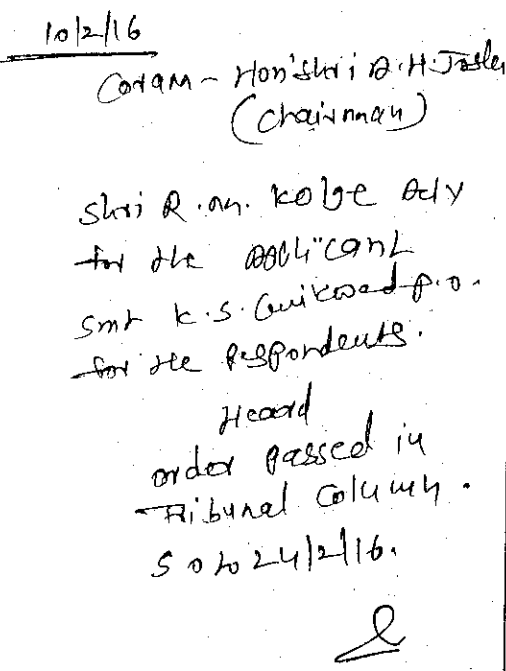 10/2/16
Coram - Hon'shri A.H. Joshi
(Chairman)
Shri R.M. Kolge Adv
for the applicant
Smt K.S. Gaikwad p.o.
for the Respondents.
Heard
order passed in
Tribunal Column.
S o to 24/2/16.